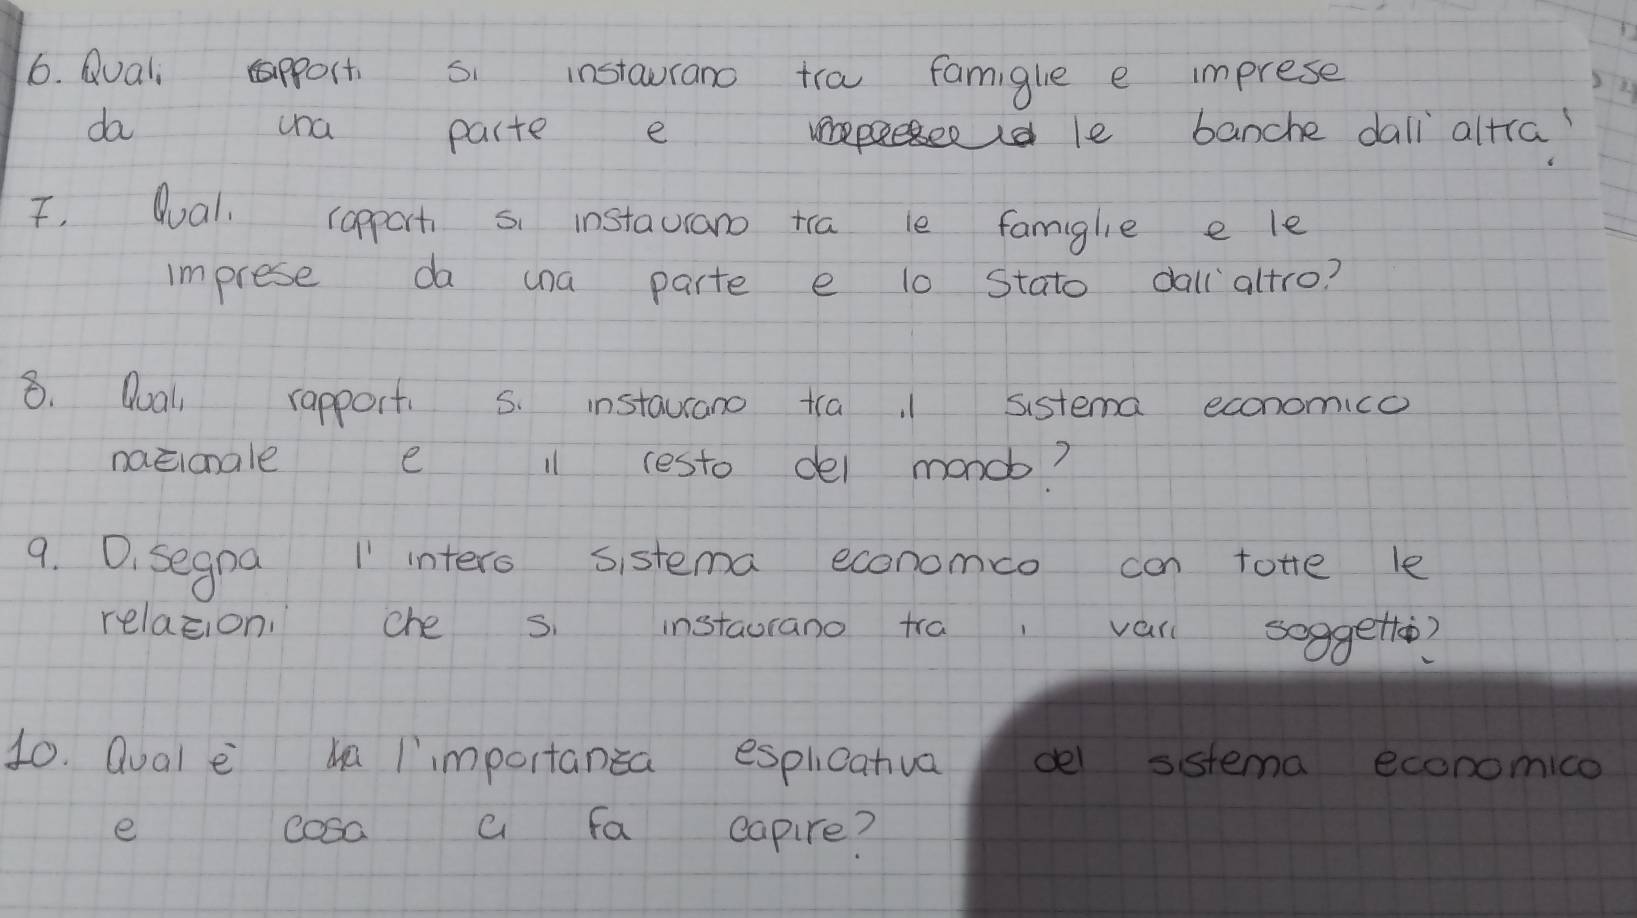 6. Quali rapporti si instaurano tra famiglie e imprese
da una parte e le banche dall'altra?
7. Quali rapporti si instaurano tra le famiglie e le
imprese da una parte e lo Stato dall'altro?
8. Quali rapporti si instaurano tra il sistema economico
nazionale e il resto del mondo?
9. Disegna l'intero sistema economico con tutte le
relazioni che si instaurano tra i vari soggetti?
10. Qual è l'importanza esplicativa del sistema economico
e cosa ci fa capire?